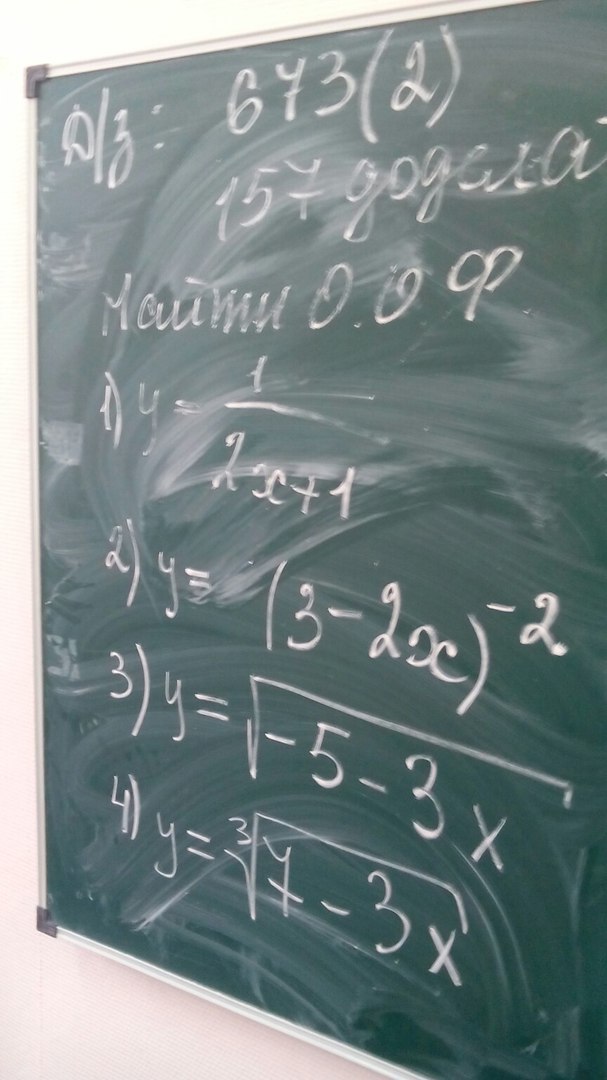 Д/з: 673(2)
157 додела
Найти О.О Ф.
1) y = 1/(2x+1)
2) y = (3-2x)^-2
3) y = √(-5-3x)
4) y = ³√(7-3x)